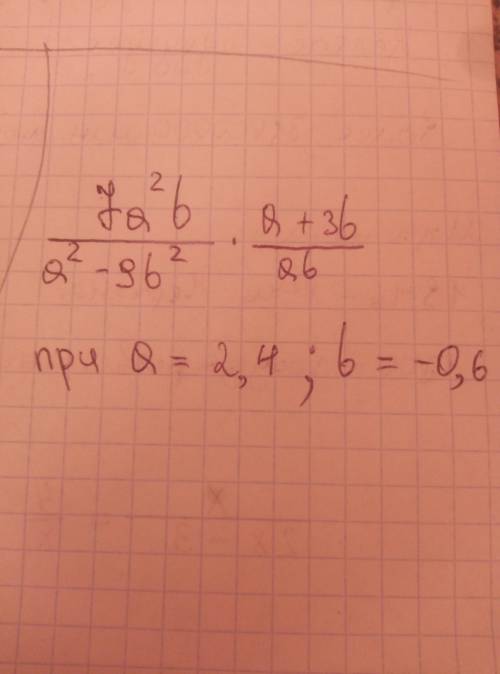 7a²b / a² - 9b² · a + 3b / ab
при a = 2,4 ; b = -0,6